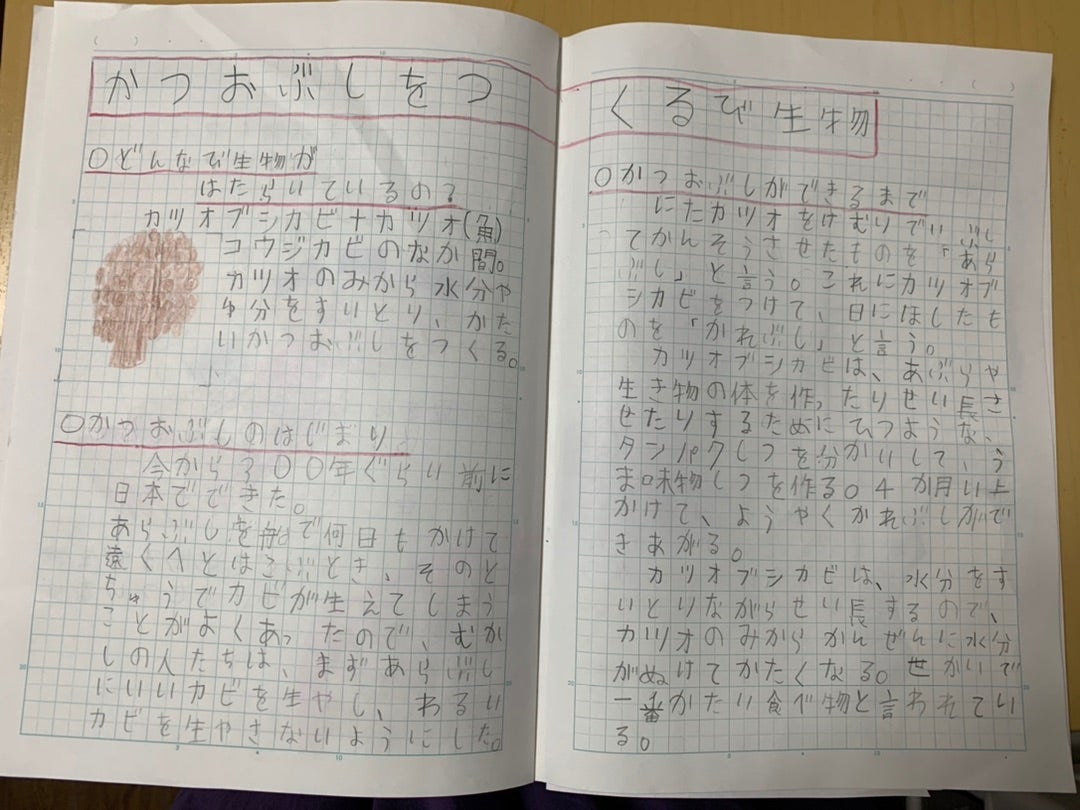 かつおぶしをつ
〇どんなび生物が
はたらいているの？
カツオブシカビ+カツオ(魚)
コウジカビのなか間。
カツオのみから水分や
ゆ分をすいとり、かた
いかつおぶしをつくる。
〇かつおぶしのはじまり
今から300年ぐらい前に
日本でできた。
あらぶしを船で何日もかけて
遠くへとはこぶとき、そのと
ちゅうでカビが生えてしまう
ことがよくあったので、むか
しの人たちは、まずあらぶし
にいいカビを生やし、わるい
カビを生やさないようにした。
くるび生物
〇かつおぶしができるまで
にたカツオをけむりでいぶし
てかんそうさせたものを「あら
ぶし」と言う。これにカツオブ
シカビをつけて、日にほしたも
のを「かれぶし」と言う。
カツオブシカビは、あぶらや
生き物の体を作ったりせい長さ
せたりするためにひつような、
タンパクしつを分かいして、う
ま味物しつを作る。4か月い上
かけて、ようやくかれぶしがで
きあがる。
カツオブシカビは、水分をす
いとりながらせい長するので、
カツオのみからかんぜんに水分
がぬけてかたくなる。世かいで
一番かたい食べ物と言われてい
る。